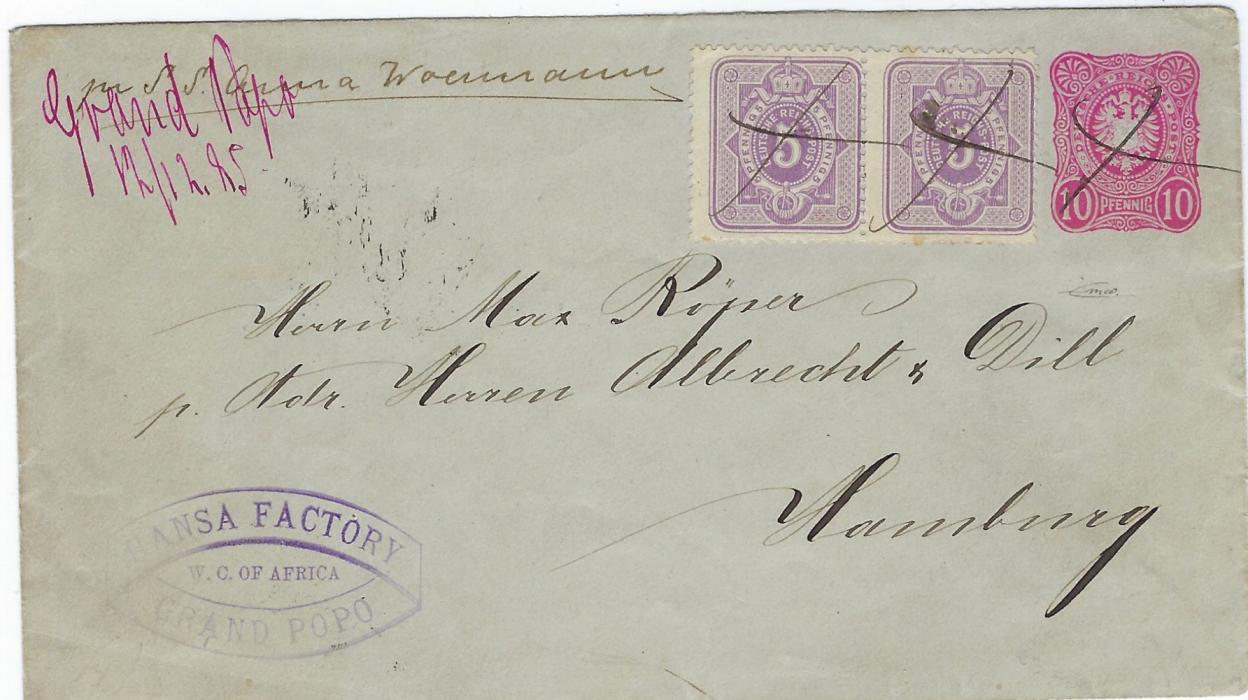 Grand Popo
12/12.85
pr S.S. Anna Woermann
5 PFENNIG 5
DEUTSCHE REICHS-POST
5
5 PFENNIG 5
DEUTSCHE REICHS-POST
5
10 PFENNIG 10
Herrn Max Röper
p. Adr. Herren Albrecht & Dill
Hamburg
HANSA FACTORY
W. C. OF AFRICA
GRAND POPO